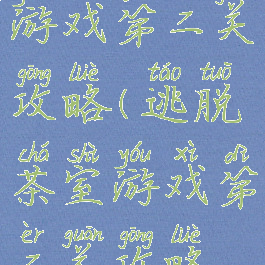 游戏第二关
gōng lüè táo tuō
攻略(逃脱
chá shì yóu xì dì
茶室游戏第
èr guān gōng lüè
二关攻略